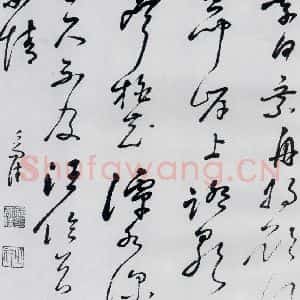 李白乘舟將欲行
聞岸上踏歌
聲桃花潭水深
尺不及汪倫送
情
Shufawang.CN